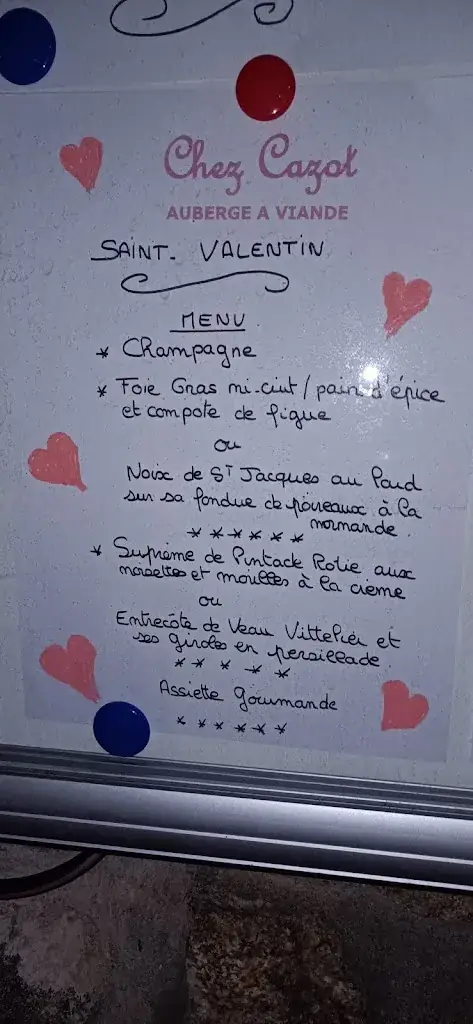 Chez Cazot
AUBERGE A VIANDE
SAINT. VALENTIN
MENU
* Champagne
* Foie Gras mi-cuit / pain d'épice
et compote de figue
ou
Noix de St Jacques au Lard
sur sa fondue de poireaux à la
normande.
* * * * * *
* Suprème de Pintade Rotie aux
noisettes et morilles à la crème
ou
Entrecôte de Veau Vittelier et
ses girolles en persillade.
* * * * *
Assiette Gourmande
* * * * * *